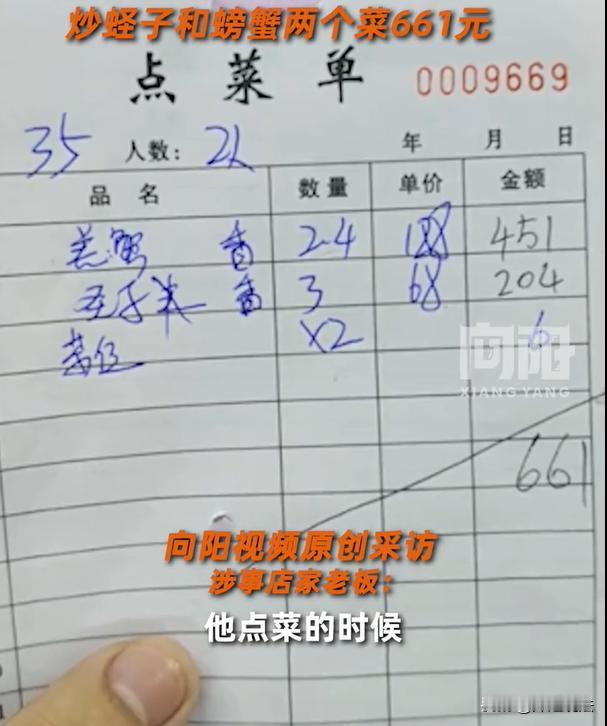 炒蛏子和螃蟹两个菜661元
点菜单 0009669
35 人数: 2人 年 月 日
品名 数量 单价 金额
羔蟹 2.4 188 451
3 68 204
茶位 x2 6
向阳
XIANG YANG
661
向阳视频原创采访
涉事店家老板:
他点菜的时候